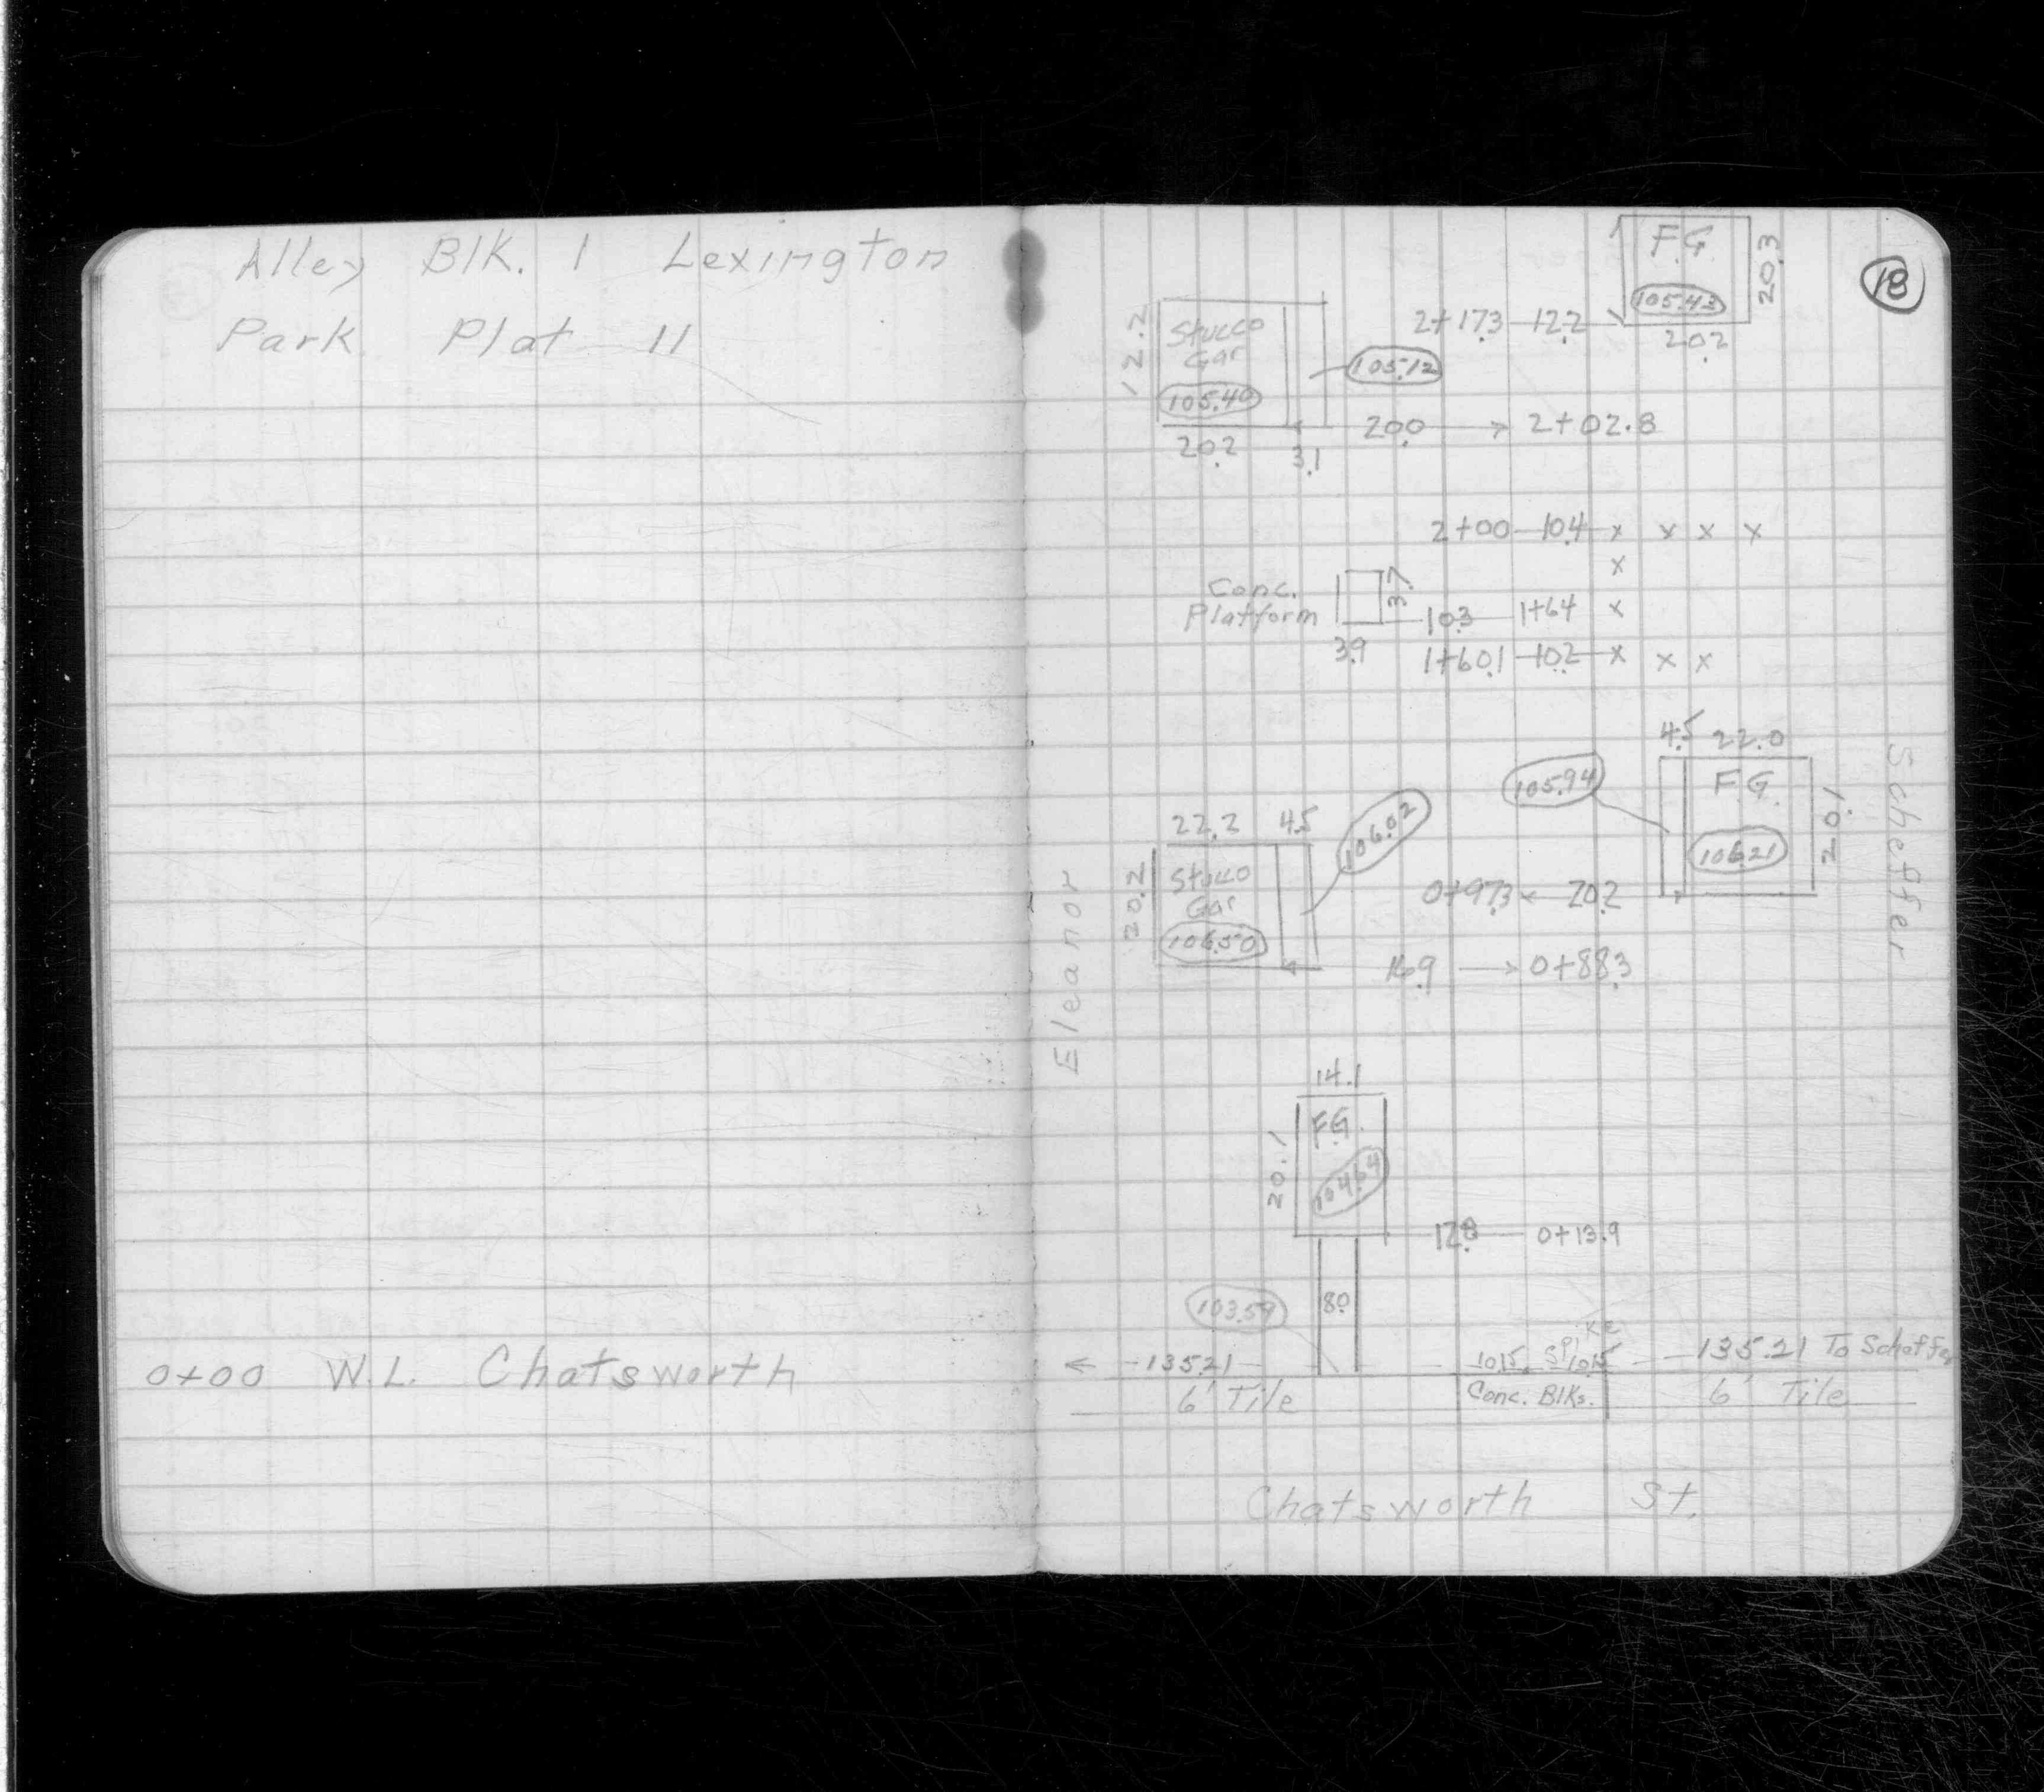 Alley Blk. 1 Lexington
Park Plat 11
0+00 W.L. Chatsworth
18
F.G.
105.43
20.3
20.2
2+17.3 12.2
12.2
Stucco
Gar
105.40
105.12
20.2
3.1
20.0 → 2+02.8
2+00 10.4 x x x x
x
Conc.
Platform
3.7
10.3 1+64 x
3.9
1+60.1 10.2 x x x
4.5 22.0
105.94
F.G.
106.21
20.1
Scheffer
22.2 4.5
106.02
20.2
Stucco
Gar
106.50
0+97.3 ← 20.2
16.9 → 0+88.3
Eleanor
14.1
F.G.
20.1
104.64
12.8 0+13.9
103.59
8.0
← 135.21 10.15 SPIKE 10.15 135.21 To Scheffer
6' Tile Conc. Blks. 6' Tile
Chatsworth St.